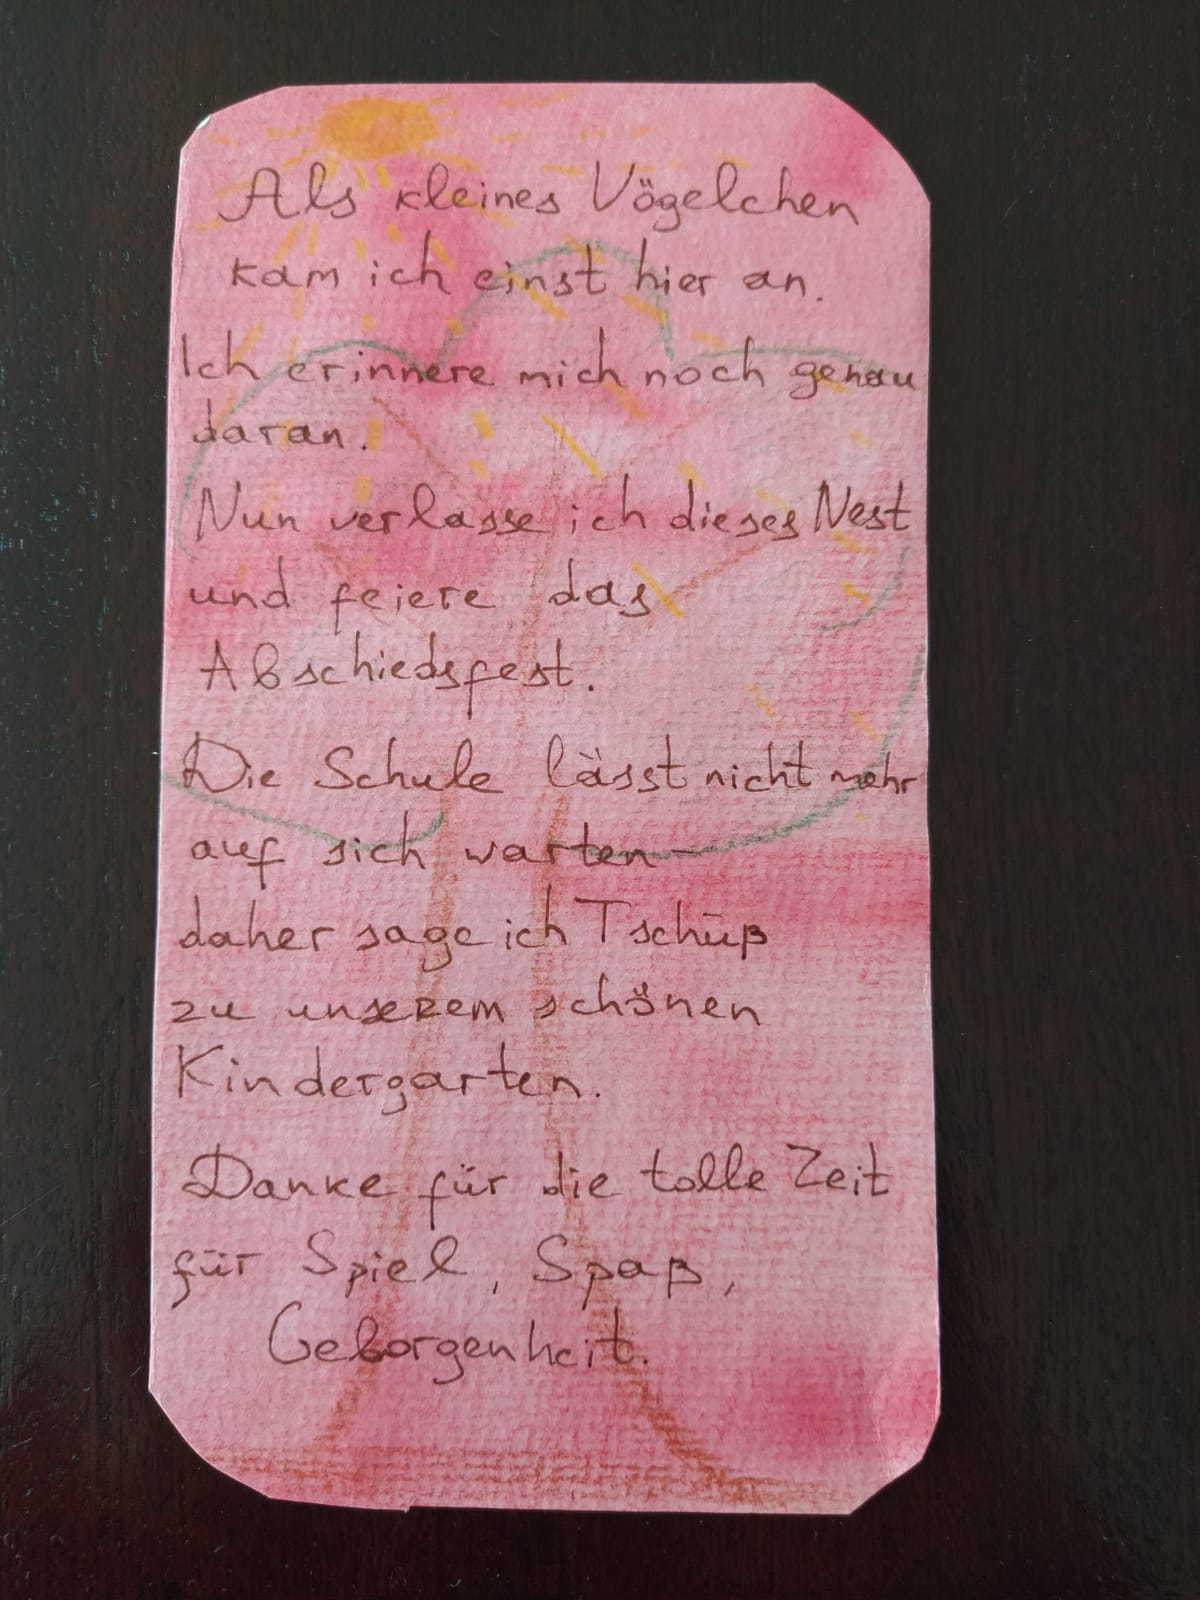 Als kleines Vögelchen
kam ich einst hier an.
Ich erinnere mich noch genau
daran.
Nun verlasse ich dieses Nest
und feiere das
Abschiedsfest.
Die Schule lässt nicht mehr
auf sich warten –
daher sage ich Tschüß
zu unserem schönen
Kindergarten.
Danke für die tolle Zeit
für Spiel, Spaß,
Geborgenheit.